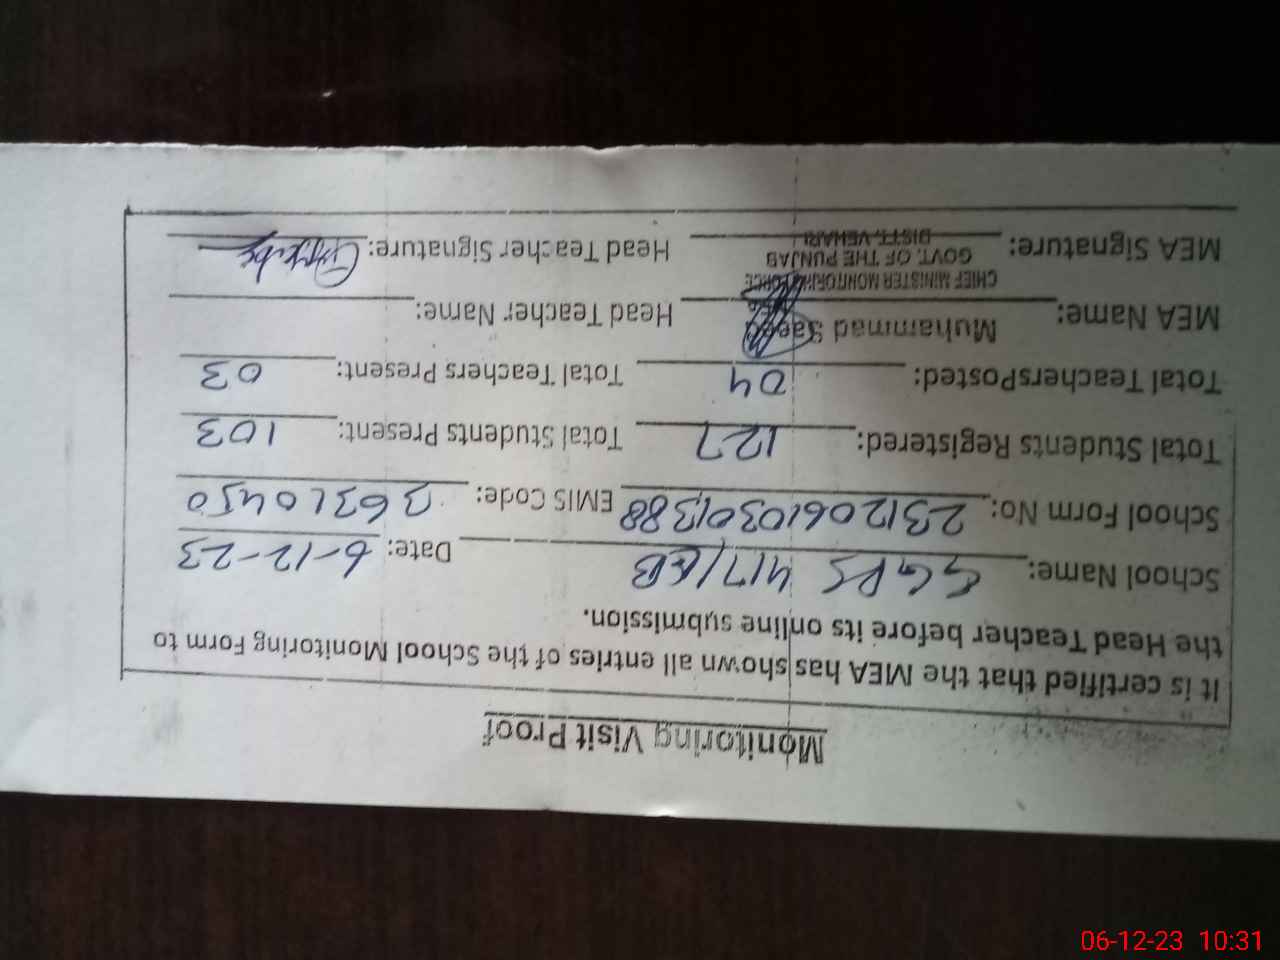 Monitoring Visit Proof
It is certified that the MEA has shown all entries of the School Monitoring Form to
the Head Teacher before its online submission.
School Name: GGPS 417/EB Date: 6-12-23
School Form No: 2312061030131388 EMIS Code: 36310450
Total Students Registered: 127 Total Students Present: 103
Total TeachersPosted: 04 Total Teachers Present: 03
MEA Name: Muhammad Saeed Head Teacher Name:
CHIEF MINISTER MONITORING FORCE
GOVT. OF THE PUNJAB
MEA Signature: DISTT, VEHARI Head Teacher Signature:
06-12-23 10:31